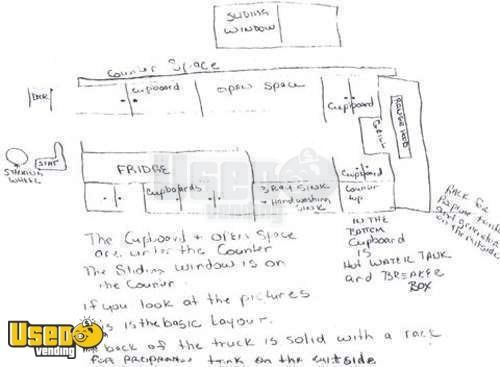 SLIDING
WINDOW
Counter Space
Cupboard
open Space
Cupboard
RANGE HOOD
GRILL
SEAT
WHEEL
FRIDGE
Cupboards
3 BAY SINK
Hand washing
SINK
Cupboard
Counter
top
IN THE
BOTTOM
Cupboard
IS
HOT WATER TANK
and BREAKER
BOX
RACK for
on the outside
The Cupboard + open Space
are under the Counter
The Sliding window is on
the Counter.
if you look at the pictures
is is the basic Layout.
back of the truck is solid with a rack
for tank on the outside
USED
vending
USED
VENDING